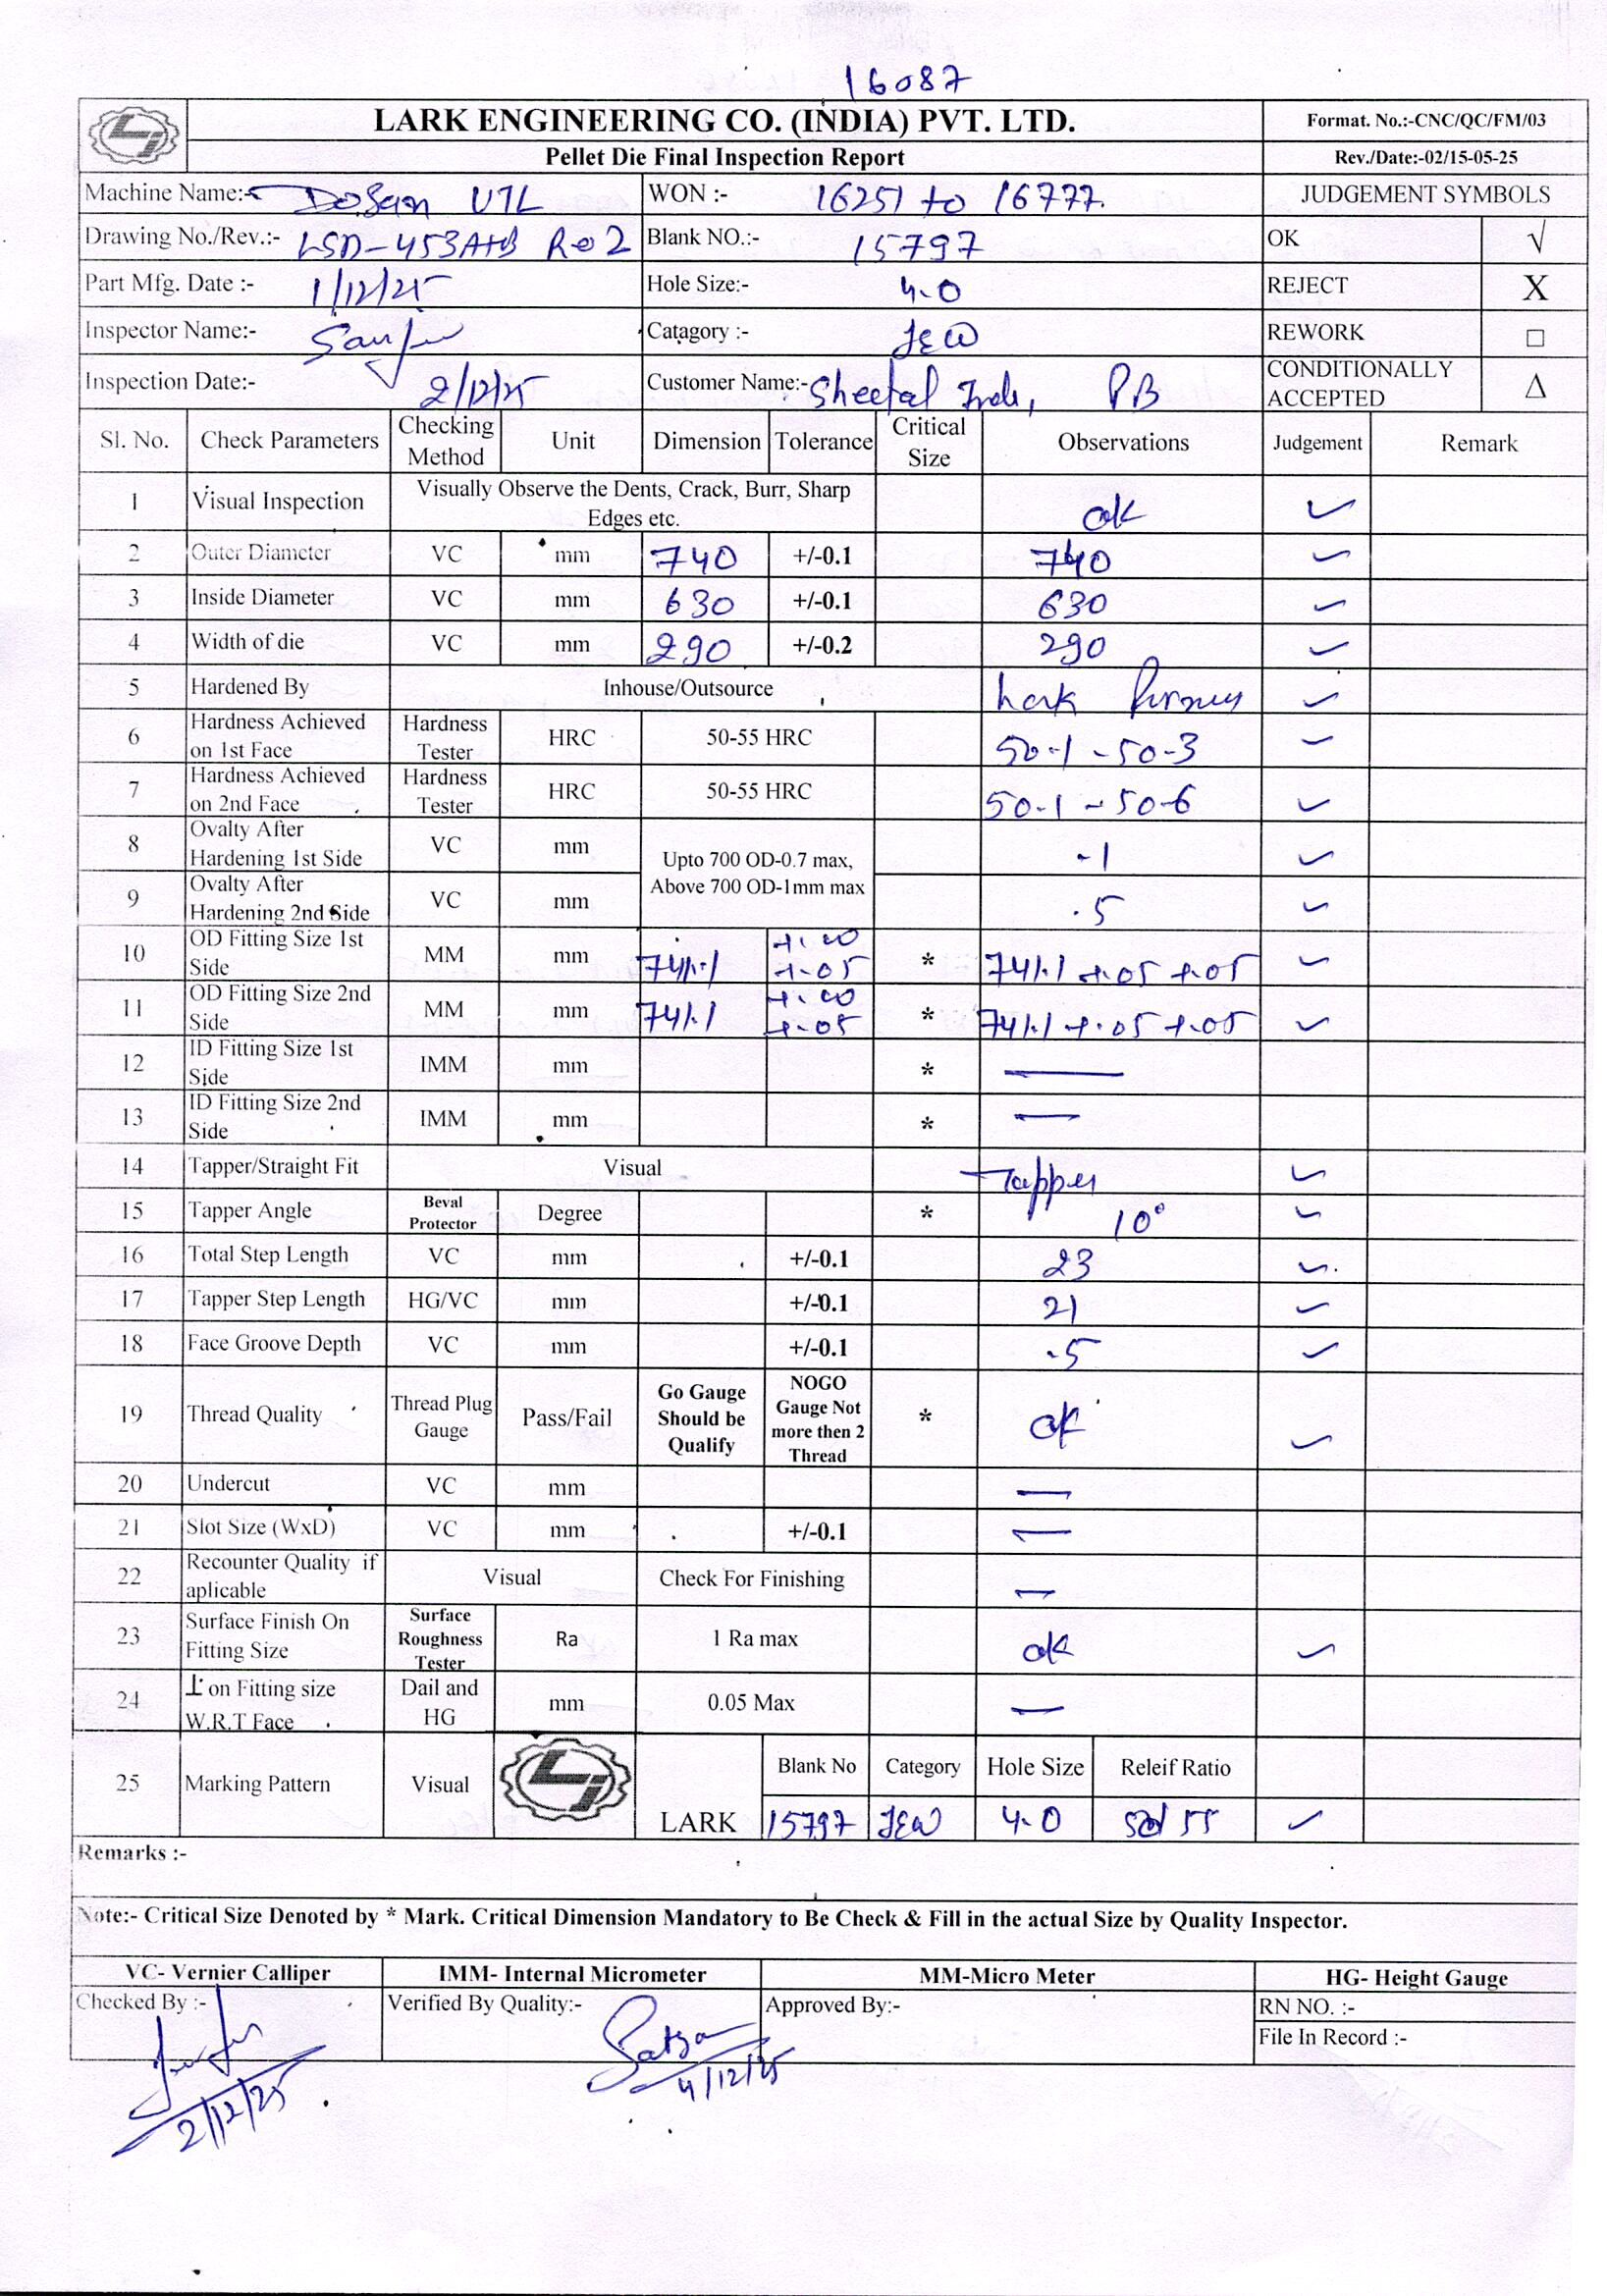 16087
LARK ENGINEERING CO. (INDIA) PVT. LTD.
Format. No.:-CNC/QC/FM/03
Pellet Die Final Inspection Report
Rev./Date:-02/15-05-25
Machine Name:- Dosan VTL WON :- 16251 to 16777. JUDGEMENT SYMBOLS
Drawing No./Rev.:- LSD-453A+B Re2 Blank NO.:- 15797 OK √
Part Mfg. Date :- 1/12/25 Hole Size:- 4.0 REJECT X
Inspector Name:- Catagory :- JEW REWORK □
Inspection Date:- 2/12/25 Customer Name:- Sheetal Inds, PB CONDITIONALLY ACCEPTED Δ
Sl. No. Check Parameters Checking Method Unit Dimension Tolerance Critical Size Observations Judgement Remark
1 Visual Inspection Visually Observe the Dents, Crack, Burr, Sharp Edges etc. ok ✓
2 Outer Diameter VC mm 740 +/-0.1 740 ✓
3 Inside Diameter VC mm 630 +/-0.1 630 ✓
4 Width of die VC mm 290 +/-0.2 290 ✓
5 Hardened By Inhouse/Outsource Lark ✓
6 Hardness Achieved on 1st Face Hardness Tester HRC 50-55 HRC 50.1 - 50.3 ✓
7 Hardness Achieved on 2nd Face Hardness Tester HRC 50-55 HRC 50.1 - 50.6 ✓
8 Ovalty After Hardening 1st Side VC mm Upto 700 OD-0.7 max, Above 700 OD-1mm max .1 ✓
9 Ovalty After Hardening 2nd Side VC mm .5 ✓
10 OD Fitting Size 1st Side MM mm 741.1 +.00 +.05 * 741.1 +.05 +.05 ✓
11 OD Fitting Size 2nd Side MM mm 741.1 +.00 +.05 * 741.1 +.05 +.05 ✓
12 ID Fitting Size 1st Side IMM mm * —
13 ID Fitting Size 2nd Side IMM mm * —
14 Tapper/Straight Fit Visual Tapper ✓
15 Tapper Angle Beval Protector Degree * 10° ✓
16 Total Step Length VC mm +/-0.1 23 ✓
17 Tapper Step Length HG/VC mm +/-0.1 21 ✓
18 Face Groove Depth VC mm +/-0.1 .5 ✓
19 Thread Quality Thread Plug Gauge Pass/Fail Go Gauge Should be Qualify NOGO Gauge Not more then 2 Thread * ok ✓
20 Undercut VC mm —
21 Slot Size (WxD) VC mm +/-0.1 —
22 Recounter Quality if aplicable Visual Check For Finishing —
23 Surface Finish On Fitting Size Surface Roughness Tester Ra 1 Ra max ok ✓
24 ⊥ on Fitting size W.R.T Face Dail and HG mm 0.05 Max —
25 Marking Pattern Visual LARK Blank No Category Hole Size Releif Ratio
15797 JEW 4.0 55 ✓
Remarks :-
Note:- Critical Size Denoted by * Mark. Critical Dimension Mandatory to Be Check & Fill in the actual Size by Quality Inspector.
VC- Vernier Calliper IMM- Internal Micrometer MM-Micro Meter HG- Height Gauge
Checked By :- Verified By Quality:- Approved By:- RN NO. :-
File In Record :-
2/12/25 4/12/25